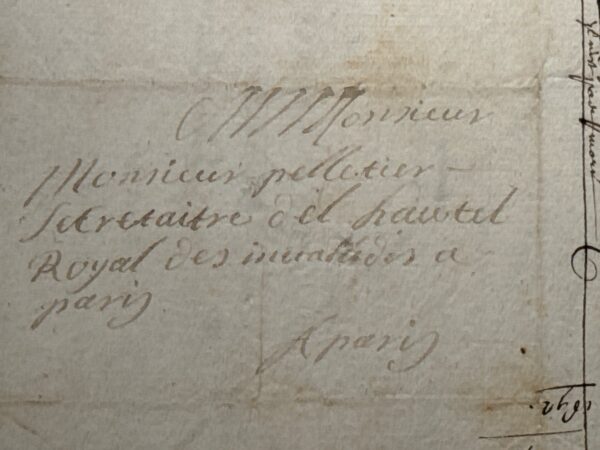 Monsieur
Monsieur pelletier
Secretaitre del hautel
Royal des inualides a
paris
A paris